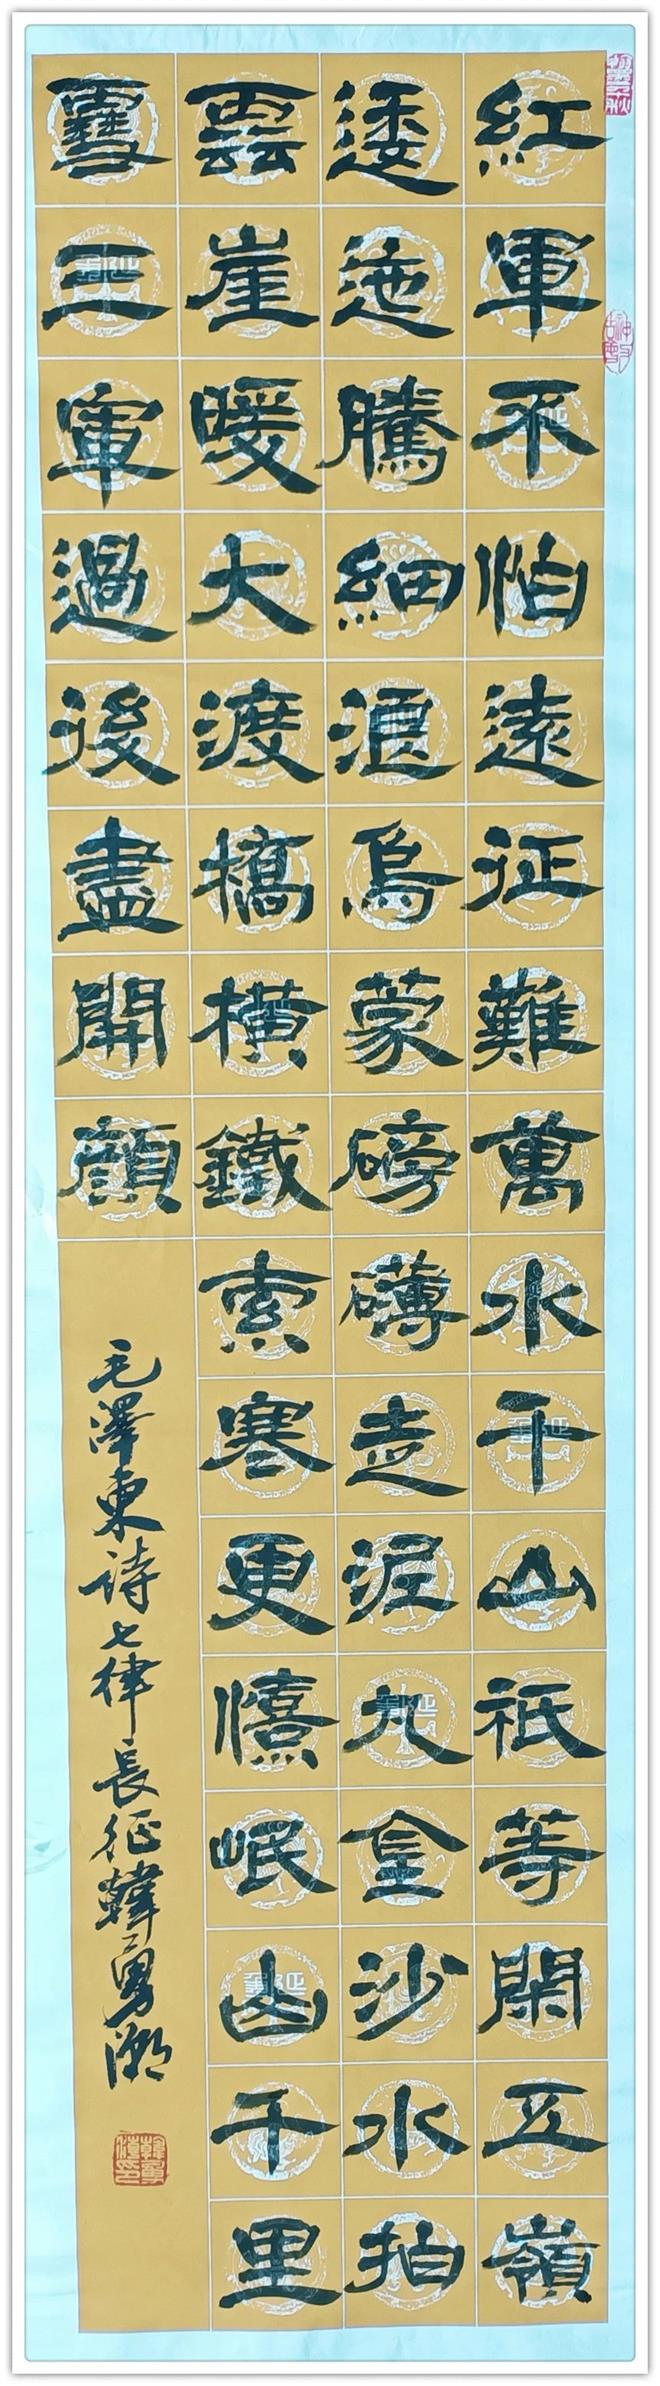 紅軍不怕遠征難萬水千山祇等閑五嶺
逶迤騰細浪烏蒙磅礴走泥丸金沙水拍
雲崖暖大渡橋橫鐵索寒更憘岷山千里
雪三軍過後盡開顏
毛澤東詩七律長征韓勇
翰墨千秋